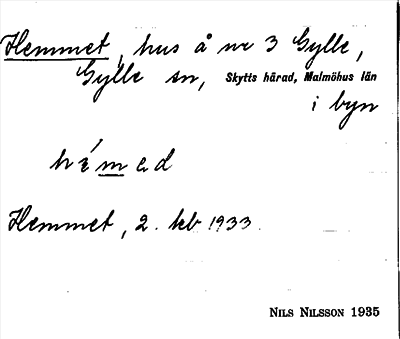 Hemmet, hus å nr 3 Gylle,
Gylle sn, Skytts härad, Malmöhus län
i byn
Hemmet, 2. kb 1933.
NILS NILSSON 1935